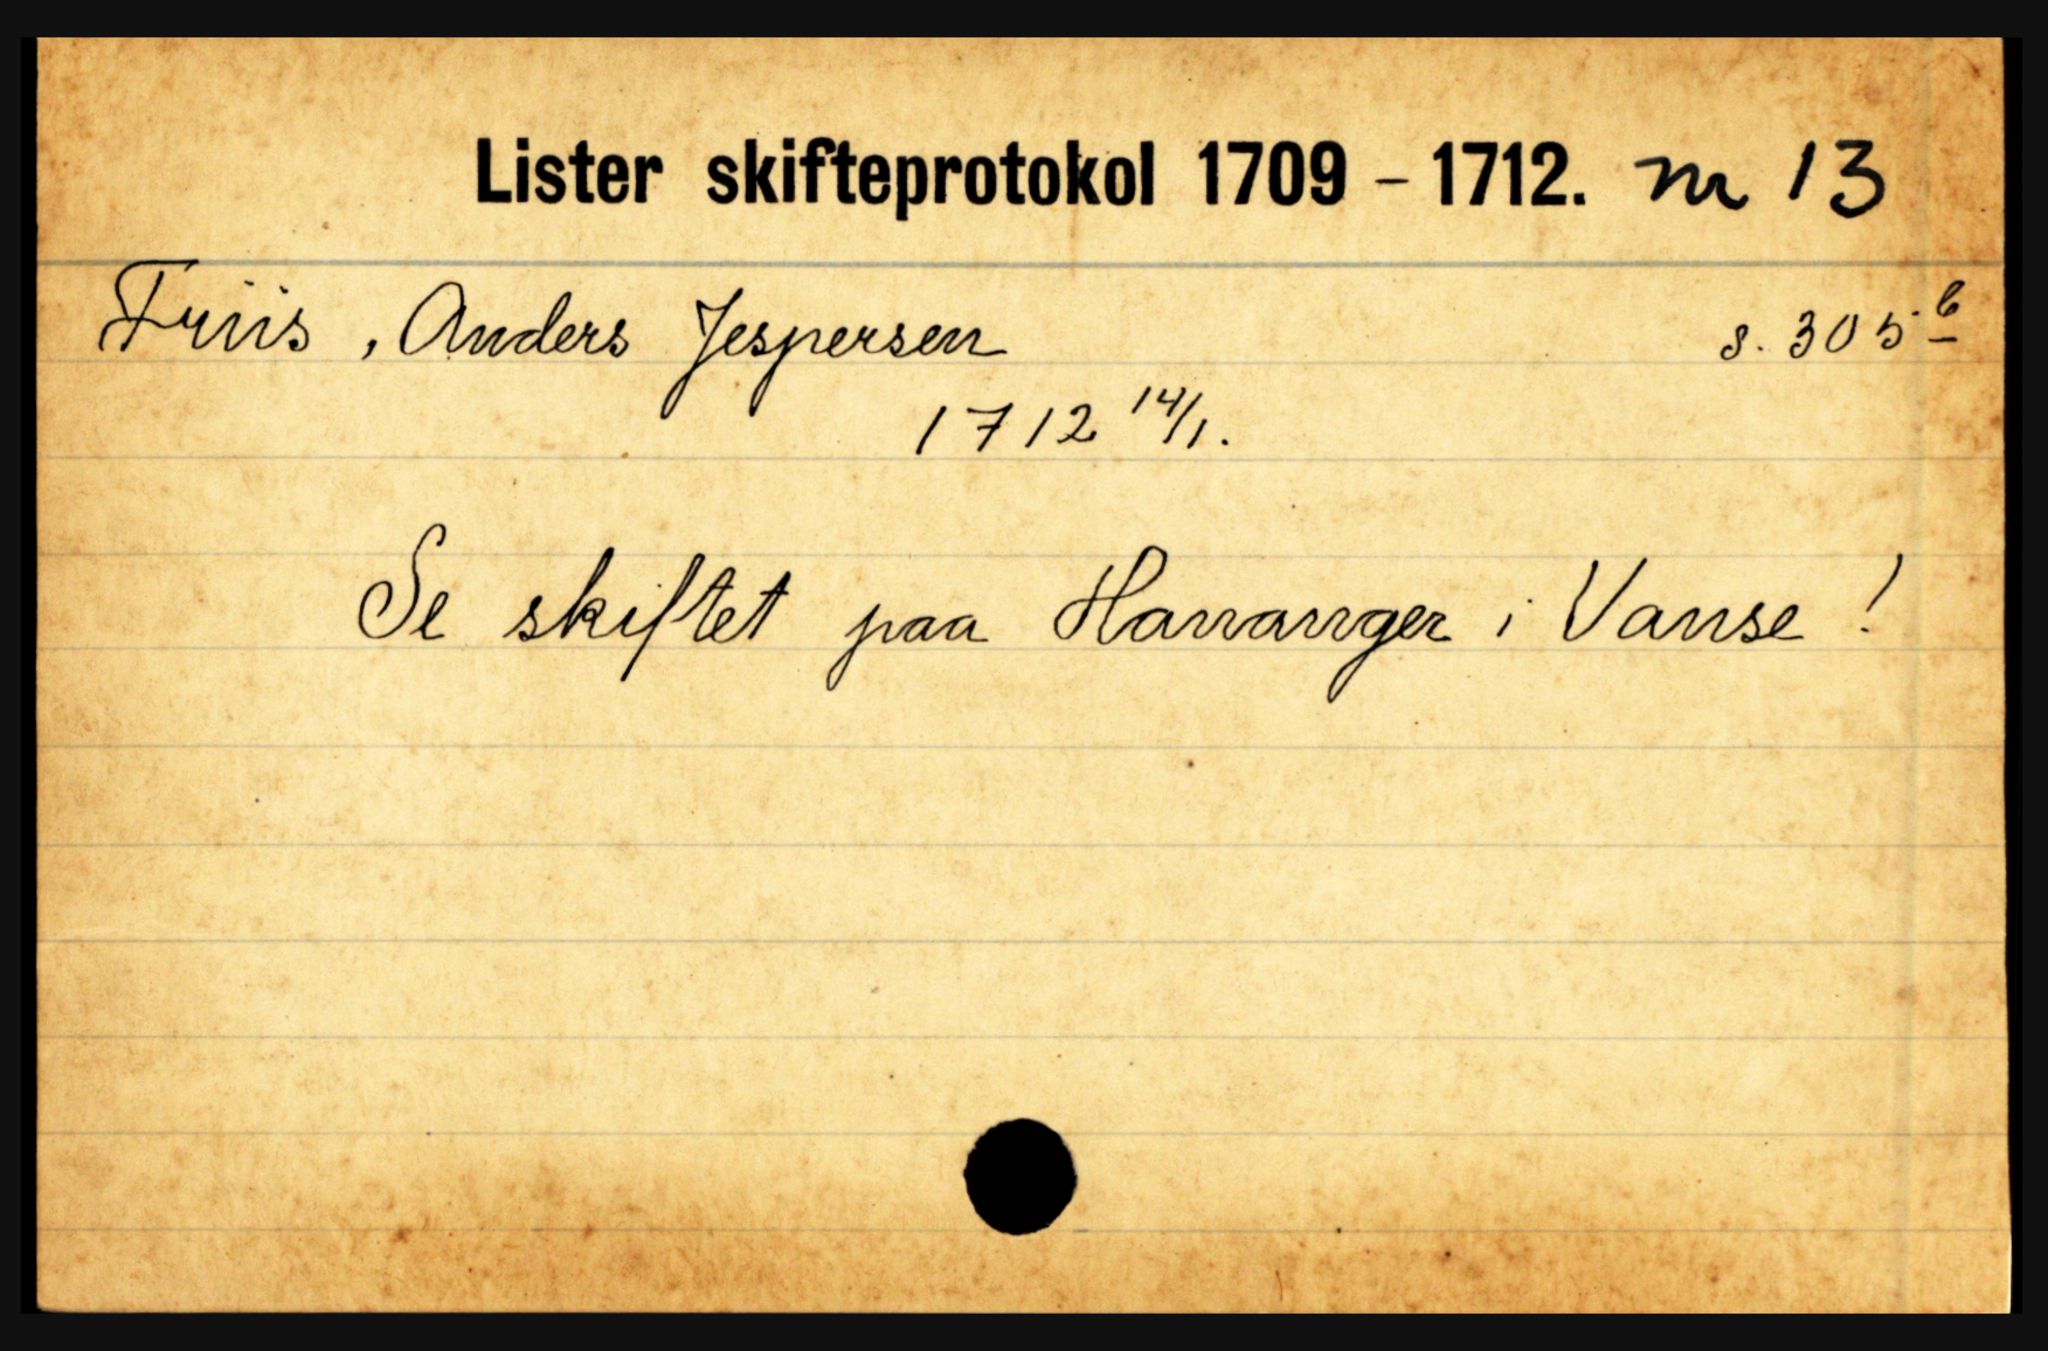 Lister skifteprotokol 1709 – 1712. nr 13
Friis, Anders Jespersen s. 305 b
1712 14/1.
Se skiftet paa Hananger i Vanse!